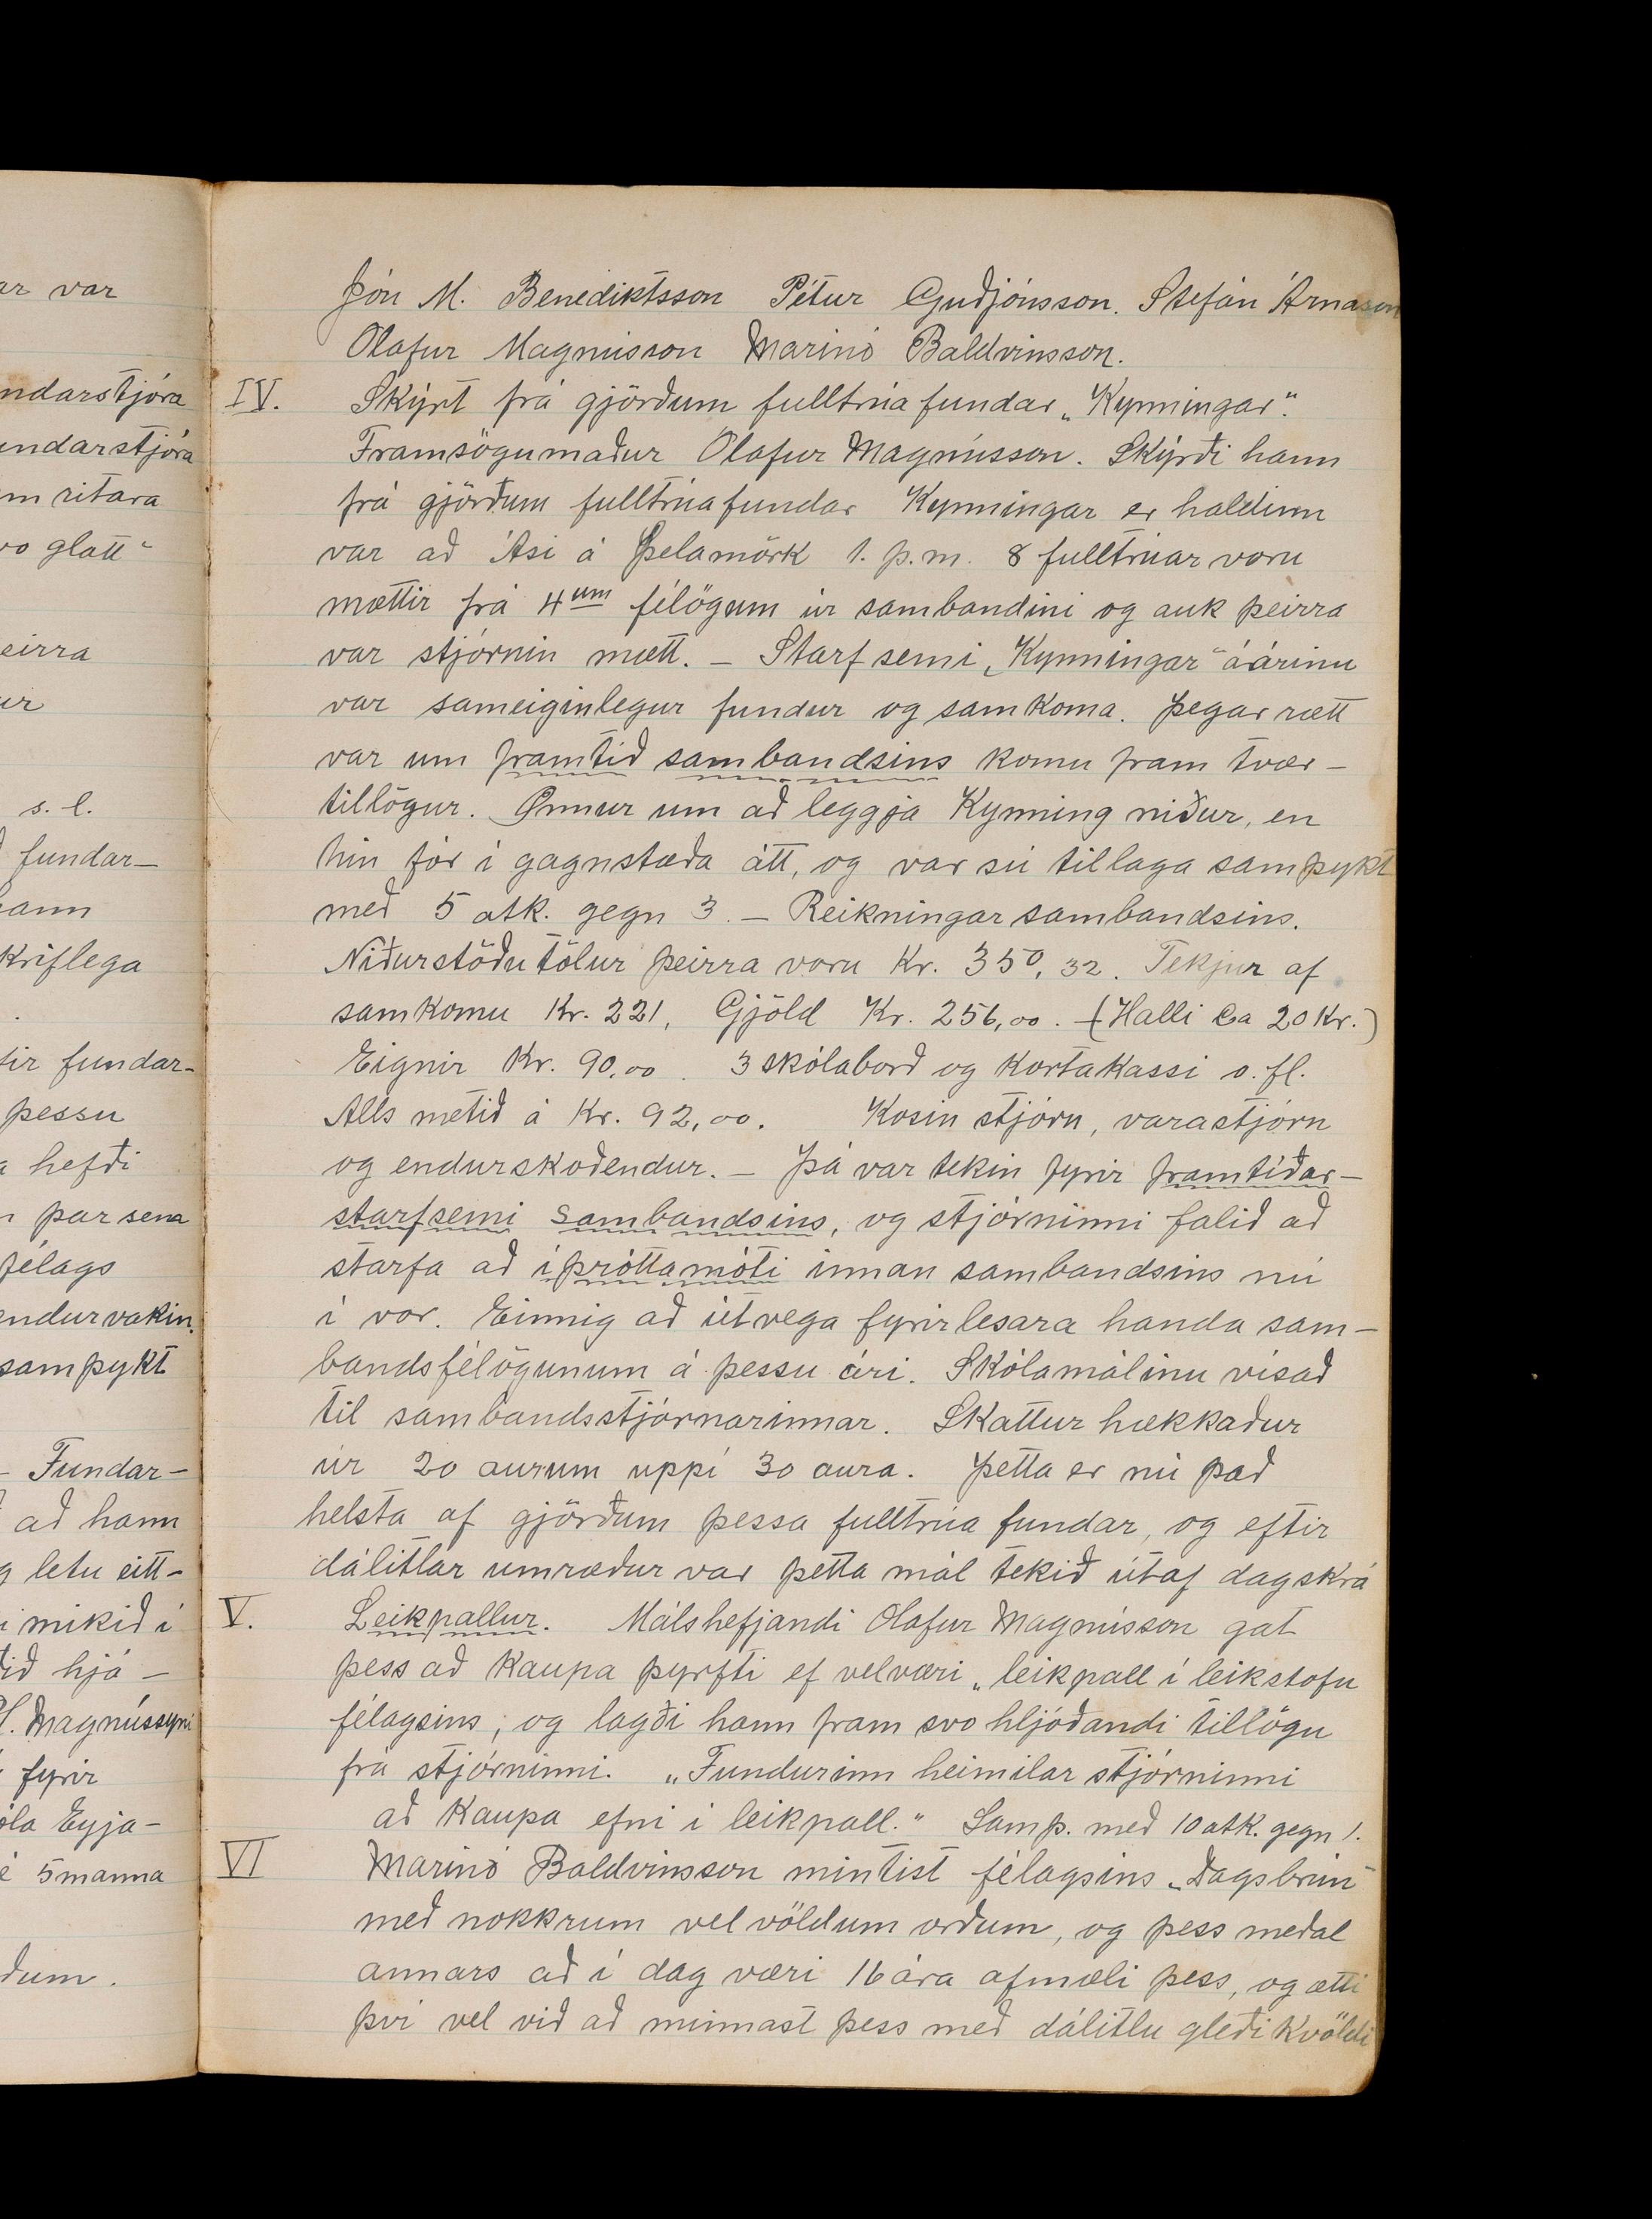 ar var
ndarstjóra
undarstjóra
m ritara
vo glatt"
eirra
ur
s. l.
fundar-
hann
kriflega
.
tir fundar-
þessu
a hefði
n þar sem
félags
endurvakin.
samþykt
- Fundar-
að hann
g letu eitt-
i mikið í
tið hjá -
Magnússyni
fyrir
óla Eyja-
é 5 manna
ðum.
Jón M. Benediktsson Pétur Guðjónsson. Stefán Árnason
Ólafur Magnússon Marinó Baldvinsson.
IV. Skýrt frá gjörðum fulltrúafundar „Kynningar".
Framsögumaður Ólafur Magnússon. Skýrði hann
frá gjörðum fulltrúafundar Kynningar er haldinn
var að Ási á Þelamörk 1. þ.m. 8 fulltrúar voru
mættir frá 4um félögum úr sambandini og auk þeirra
var stjórnin mætt. - Starfsemi „Kynningar" á árinu
var sameiginlegur fundur og samkoma. Þegar rætt
var um framtíð sambandsins komu fram tvær-
tillögur. Önnur um að leggja Kynning niður, en
hin fór í gagnstæða átt, og var sú tillaga samþykt
með 5 atk. gegn 3. - Reikningar sambandsins.
Niðurstöðutölur þeirra voru Kr. 350,32. Tekjur af
samkomu Kr. 221, Gjöld Kr. 256,00. - (Halli ca 20 Kr.)
Eignir Kr. 90,00. 3 skólaborð og kortakassi o. fl.
Alls metið á Kr. 92,00. Kosin stjórn, varastjórn
og endurskoðendur. - Þá var tekin fyrir framtíðar-
starfsemi sambandsins, og stjórninni falið að
starfa að íþróttamóti innan sambandsins nú
í vor. Einnig að útvega fyrirlesara handa sam-
bandsfélögunum á þessu ári. Skólamálinu vísað
til sambandsstjórnarinnar. Skattur hækkaður
úr 20 aurum uppí 30 aura. Þetta er nú það
helsta af gjörðum þessa fulltrúa fundar, og eftir
dálitlar umræður var þetta mál tekið útaf dagskrá
V. Leikpallur. Málshefjandi Ólafur Magnússon gat
þess að kaupa þyrfti ef vel væri „leikpall í leikstofu
félagsins, og lagði hann fram svo hljóðandi tillögu
frá stjórninni. „Fundurinn heimilar stjórninni
að kaupa efni í leikpall." Samþ. með 10 atk. gegn 1.
VI Marinó Baldvinsson mintist félagsins „Dagsbrún"
með nokkrum vel völdum orðum, og þess meðal
annars að í dag væri 16 ára afmæli þess, og ætti
því vel við að minnast þess með dálitlu gleði kvöldi